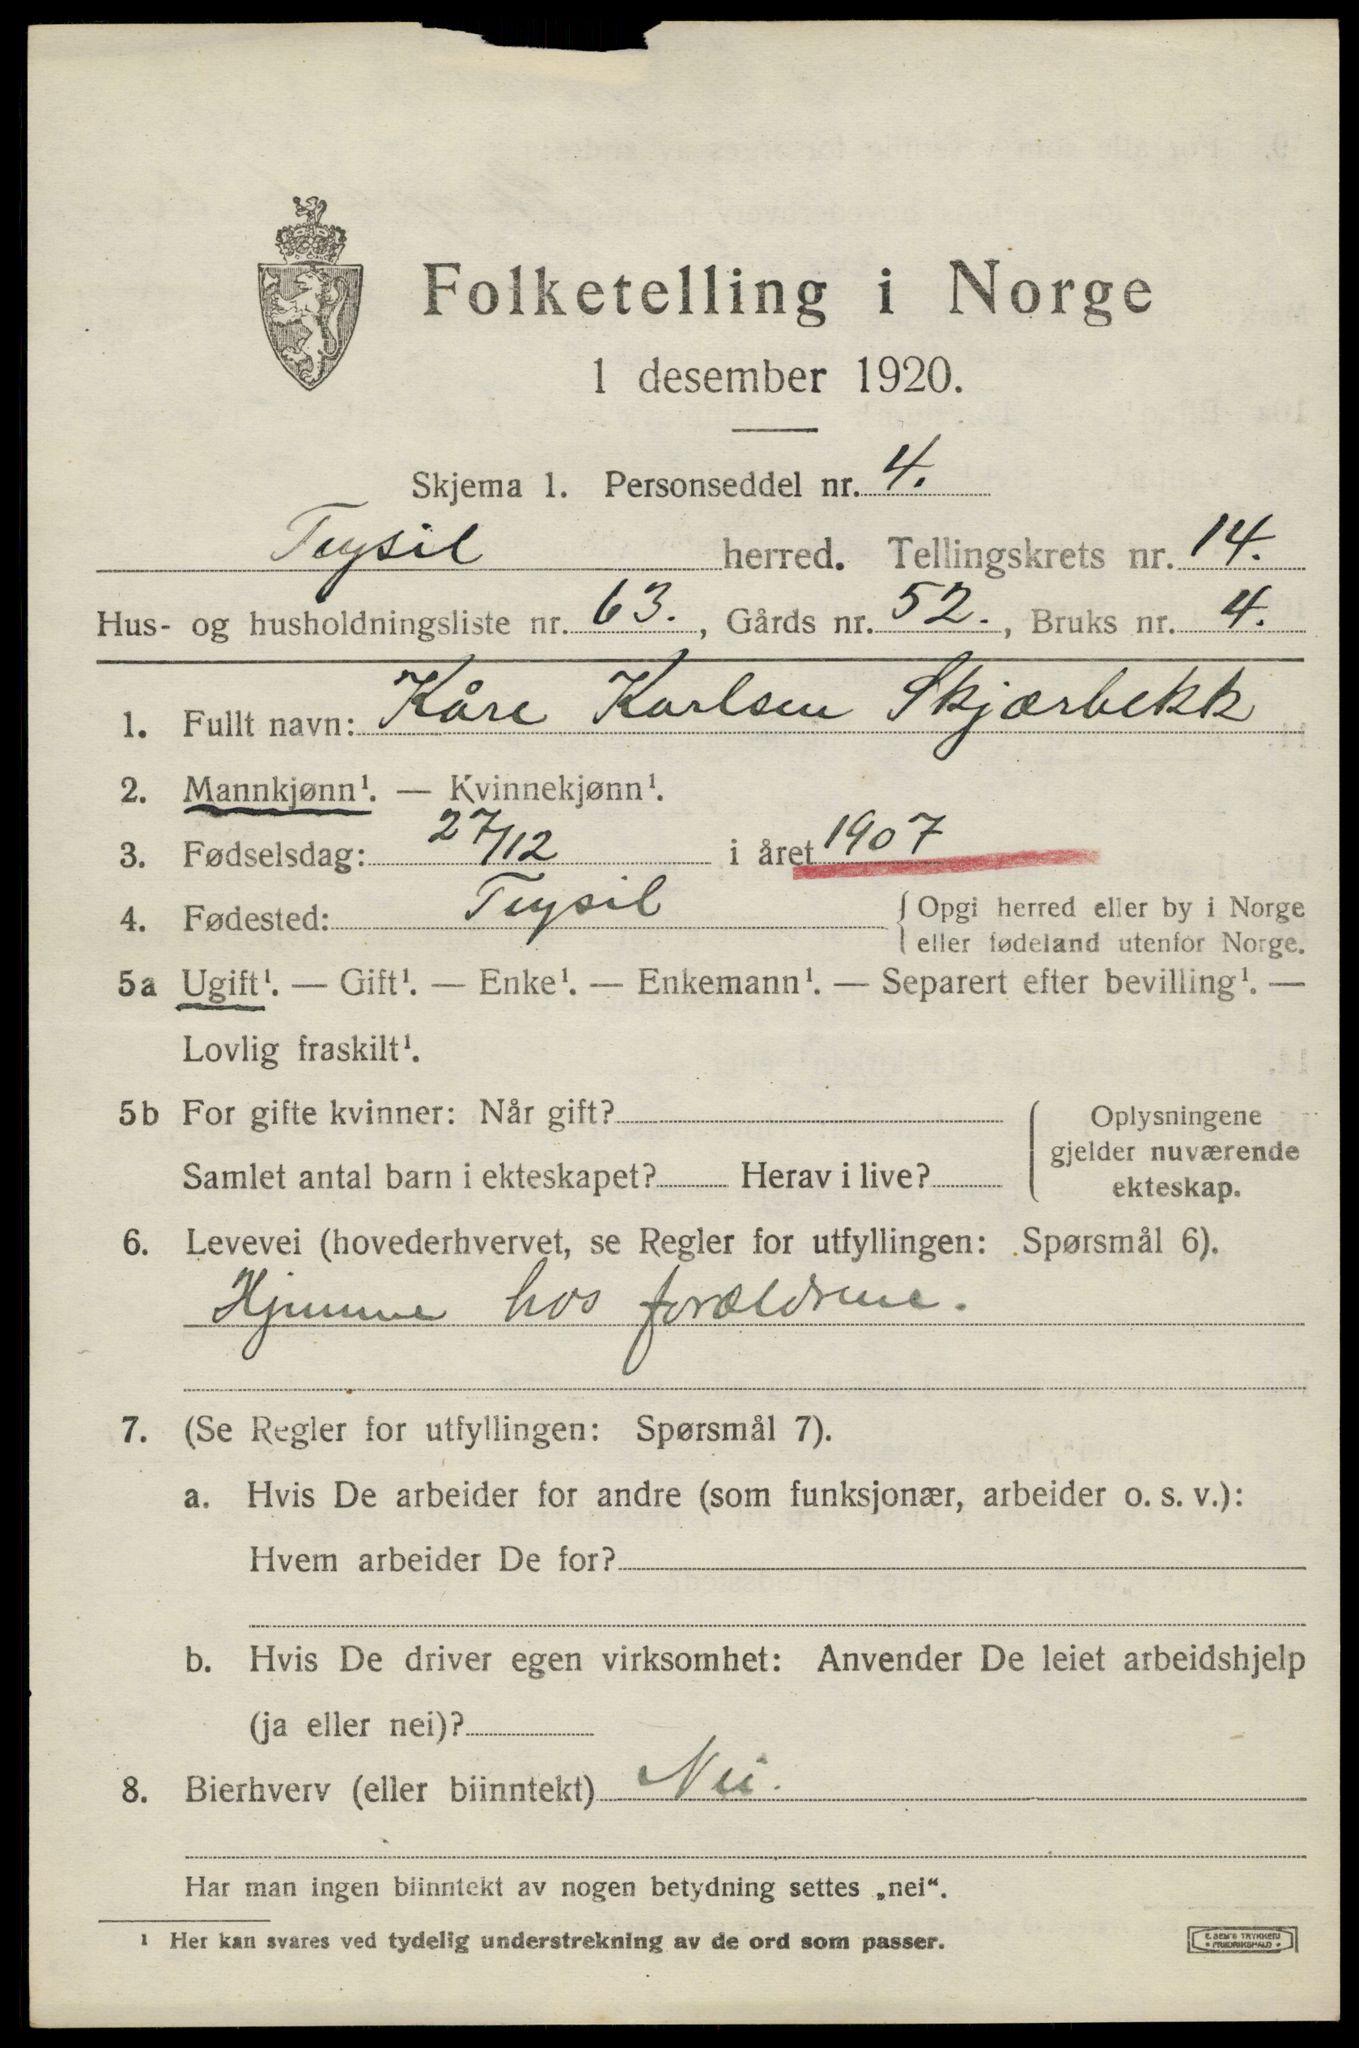 Folketelling i Norge
1 desember 1920.
Skjema 1. Personseddel nr. 4.
Trysil herred. Tellingskrets nr. 14.
Hus- og husholdningsliste nr. 63., Gårds nr. 52., Bruks nr. 4.
1. Fullt navn: Kåre Karlsen Skjærbekk
2. Mannkjønn¹. — Kvinnekjønn¹.
3. Fødselsdag: 27/12 i året 1907
4. Fødested: Trysil { Opgi herred eller by i Norge
eller fødeland utenfor Norge.
5a Ugift¹. — Gift¹. — Enke¹. — Enkemann¹. — Separert efter bevilling¹. —
Lovlig fraskilt¹.
5b For gifte kvinner: Når gift? { Oplysningene
gjelder nuværende
Samlet antal barn i ekteskapet? Herav i live? ekteskap.
6. Levevei (hovederhvervet, se Regler for utfyllingen: Spørsmål 6).
Hjemme hos forældrene.
7. (Se Regler for utfyllingen: Spørsmål 7).
a. Hvis De arbeider for andre (som funksjonær, arbeider o. s. v.):
Hvem arbeider De for?
b. Hvis De driver egen virksomhet: Anvender De leiet arbeidshjelp
(ja eller nei)?
8. Bierhverv (eller biinntekt) Nei.
Har man ingen biinntekt av nogen betydning settes „nei“.
¹ Her kan svares ved tydelig understrekning av de ord som passer.
E. SEM'S TRYKKERI
FREDRIKSHALD